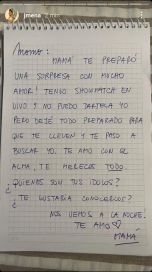 jmena
Momo:
MAMÁ TE PREPARÓ
UNA SORPRESA CON MUCHO
AMOR! TENGO SHOWMATCH EN
VIVO Y NO PUEDO DARTELA YO
PERO DEJÉ TODO PREPARADO PARA
QUE TE LLEVEN Y TE PASO A
BUSCAR YO. TE AMO CON EL
ALMA, TE MERECES TODO.
¿QUIENES SON TUS IDOLOS?
¿TE GUSTARIA CONOCERLOS?
NOS VEMOS A LA NOCHE!
TE AMO ♡
MAMÁ